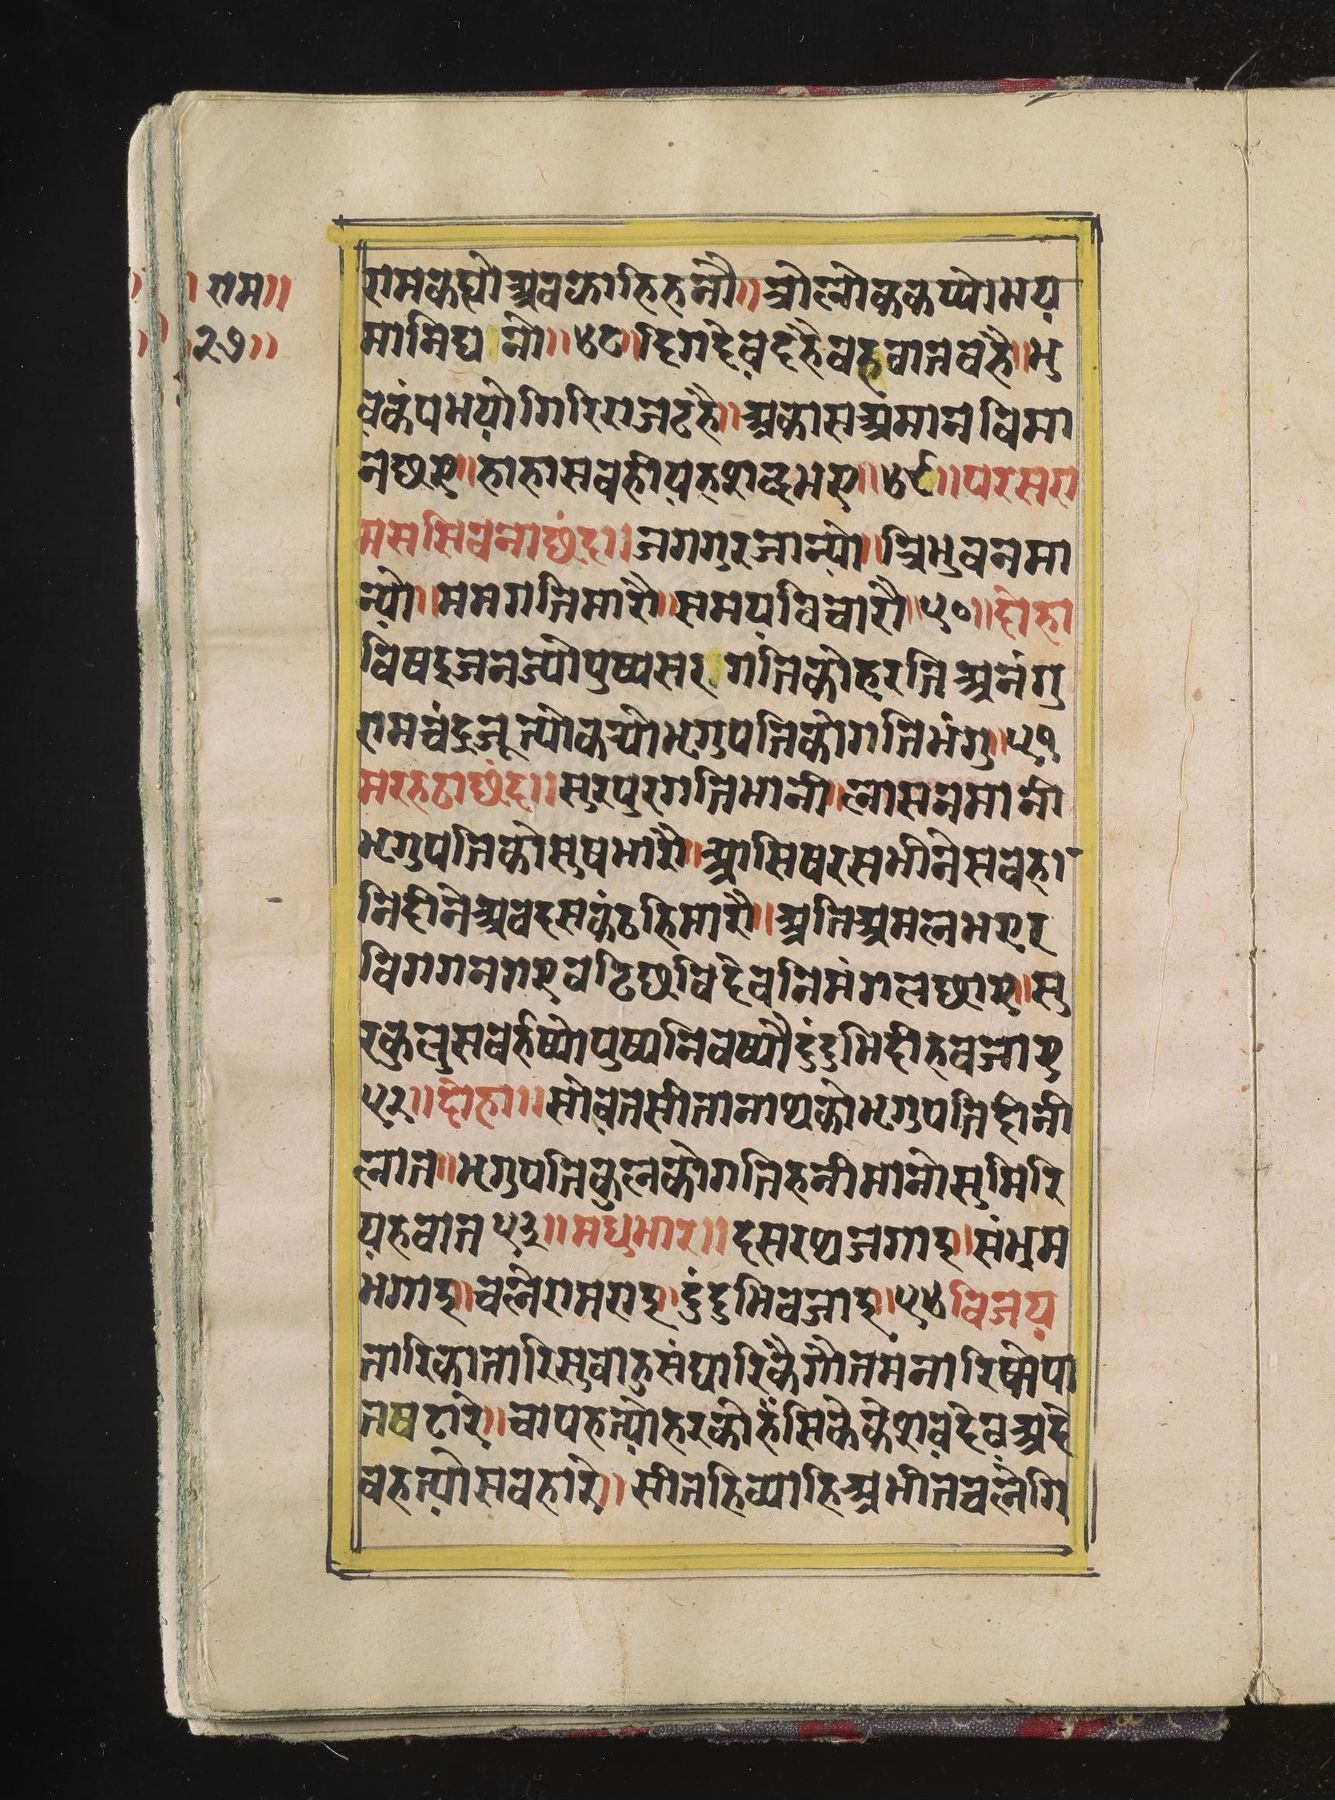 ॥राम॥
॥२७॥
रामकह्यौअवकाहिहनौ॥त्रौलौककप्यौभय
मानिघ्य नौ॥४८॥दिगदेवदहैवहवातवहै॥भु
वकंपभयोगिरिराजढहै॥अकासअमानविमा
नछए॥हाहासबहीयहशब्दभए॥४९॥परसरा
मससिवदनाछंदा॥जगगुरजान्यौ॥त्रिभुवनमा
न्यौ॥ममगतिमारौ॥समयविचारौ॥५०॥दोहा
विषदुजनज्यौपुष्पसर गतिकोहरतिअनंगु
रामचंद्रजूत्यौकर्‍यौभृगुपतिकोगतिभंगु॥५१
मरहठाछंदा॥सुरपुरगतिभानी॥लासनमानी
भृगुपतिकौसुषभारौ॥आसिषरसभीनेसबहा
निदीनेअबदसकंठहिमारौ॥अतिअमलभएर
विगगनगएवढिछविदेवनिमंगलछाए॥सु
रकुलुसबर्हष्योपुष्पनिवर्ष्यौदुंदुभिदीहबजाए
५२॥दोहा॥सोवतसीतानाथकोभृगुपतिदीनी
लात॥भृगुपतिकुलकौगतिहनीमानोसुमिरि
यहबात५३॥मधुभार॥दसरथजगाइ॥संभ्रम
भगाइ॥चलेरामराइ॥दुंदुभिबजाइ॥५४विजय
तारिकातारिसुबाहुसंघारिकैगौतमनारिकेपा
तषटारे॥चापहत्यौहरकोहँसिकैकेशवदेवअदे
वहत्यौसबहारे॥सीतहिव्याहिअभीतचलेगि